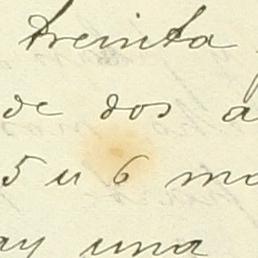 treinta
de dos a
5 u 6 m
ay una